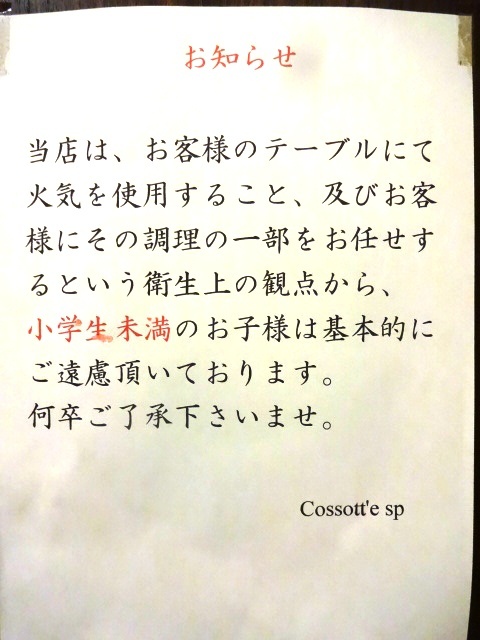 お知らせ
当店は、お客様のテーブルにて
火気を使用すること、及びお客
様にその調理の一部をお任せす
るという衛生上の観点から、
小学生未満のお子様は基本的に
ご遠慮頂いております。
何卒ご了承下さいませ。
Cossott'e sp